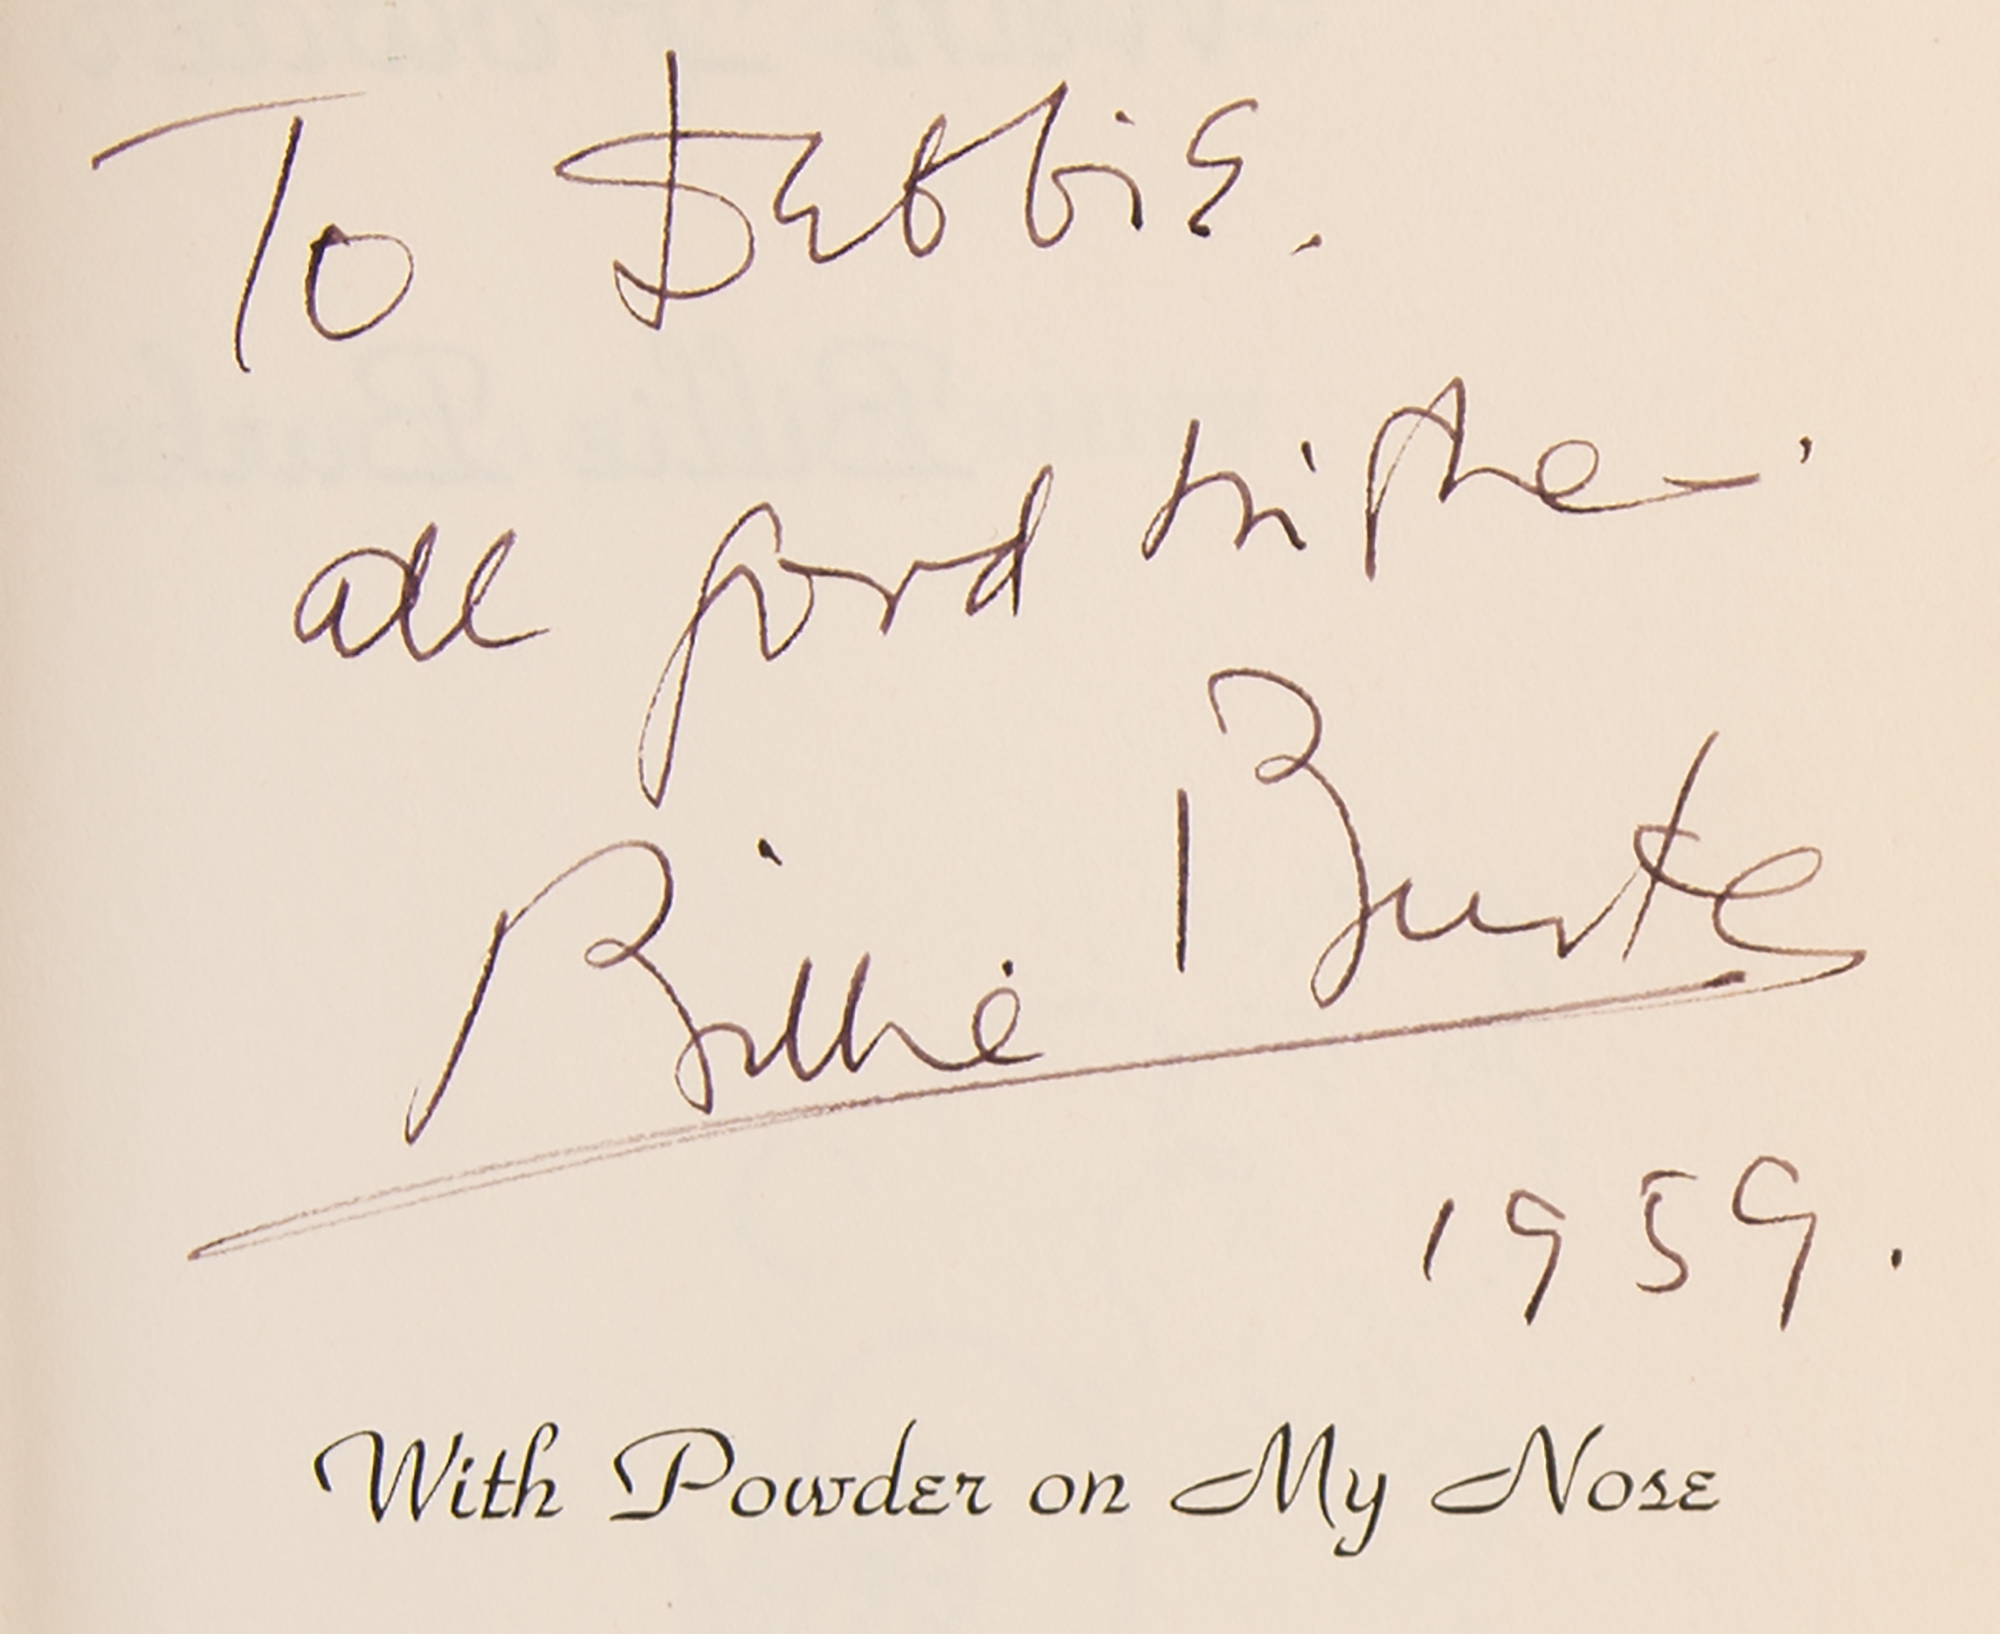 To Debbie.
all good wishes.
Billie Burke
1959.
With Powder on My Nose